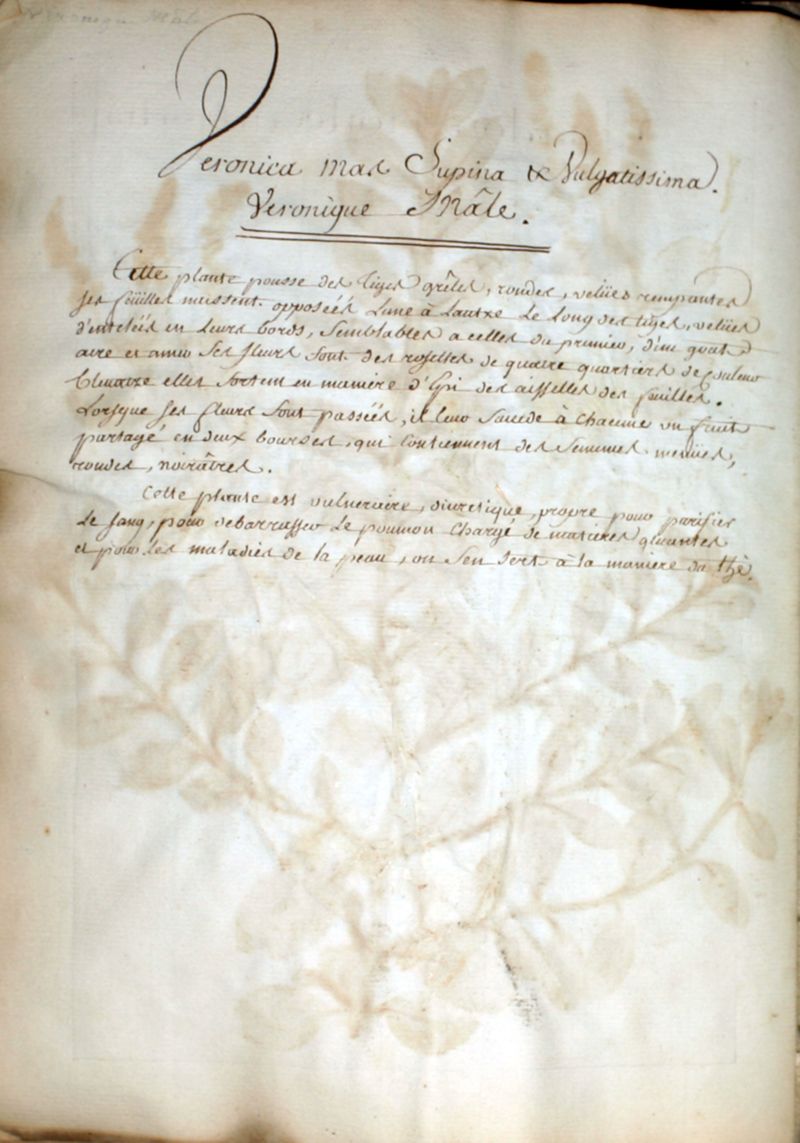 Veronique Mâle
Veronica mas Supina & Vulgatissima.
Veronique Mâle.
Cette plante pousse des tiges grêles, rondes, velües rempantes
ses feüilles naissent opposéés l'une à l'autre le long des tiges, velües
d'enteléés en leurs bords, semblables a celles du prunier, d'un gout
acre et amer ses fleurs sont des rosettes de quatre quartiers de Couleur
bleuatre elles sortent en manière d'Epi des aisselles des feuilles.
Lorsque ses fleurs sont passéés, il leur succede à chacune un fruit
partagé en deux bourses, qui contiennent des semences menües,
rondes, noirâtres.
Cette plante est vulneraire, diuretique, propre pour purifier
le sang, pour debarrasser le poumon chargé de matieres gluantes
et pour les maladies de la peau, on s'en sert à la maniere du thé.